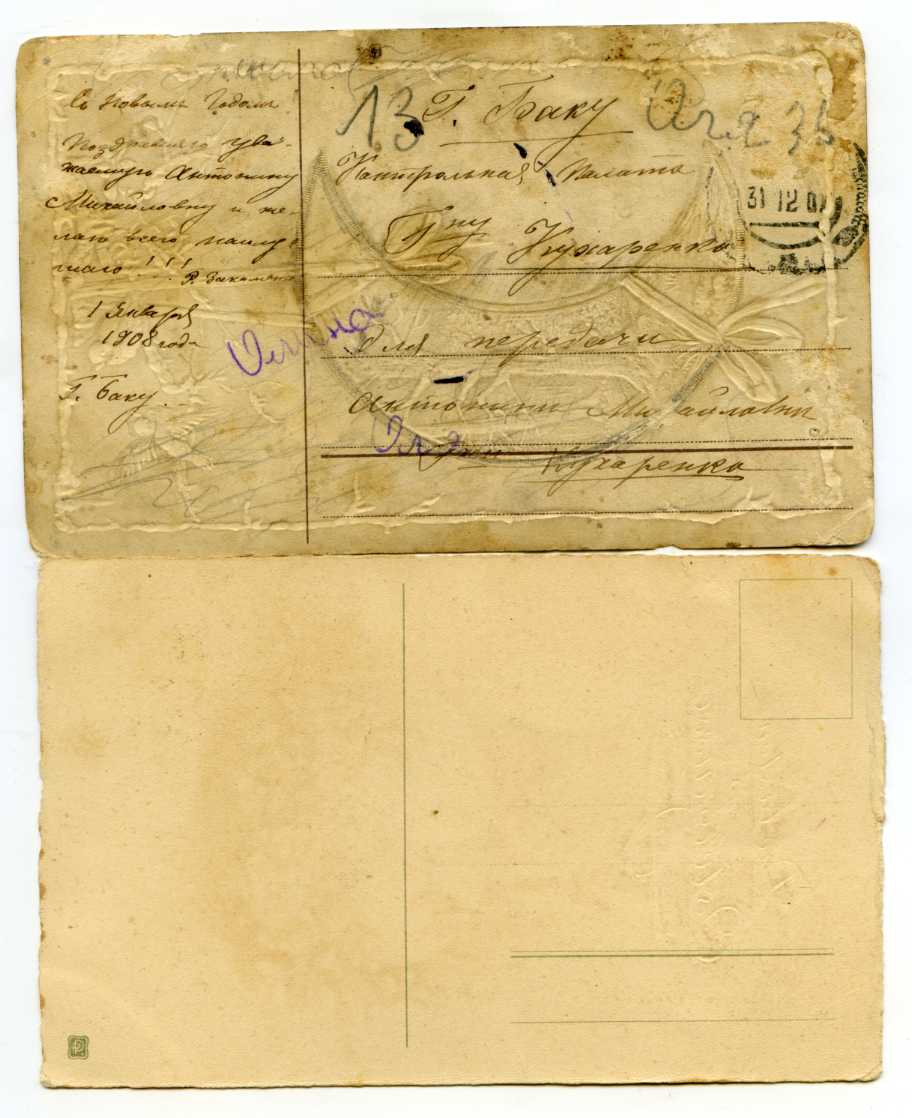 Съ Новымъ Годомъ!
Поздравляю ува-
жаемую Антонину
Михайловну и же-
лаю всего наилу
шаго!!!
Р.
1 Января
1908 года
Г. Баку.
13
Г. Баку
Контрольная Палата
Гну Кухаренко
Для передачи
Антонины Михайловны
Кухаренко
31 12 07